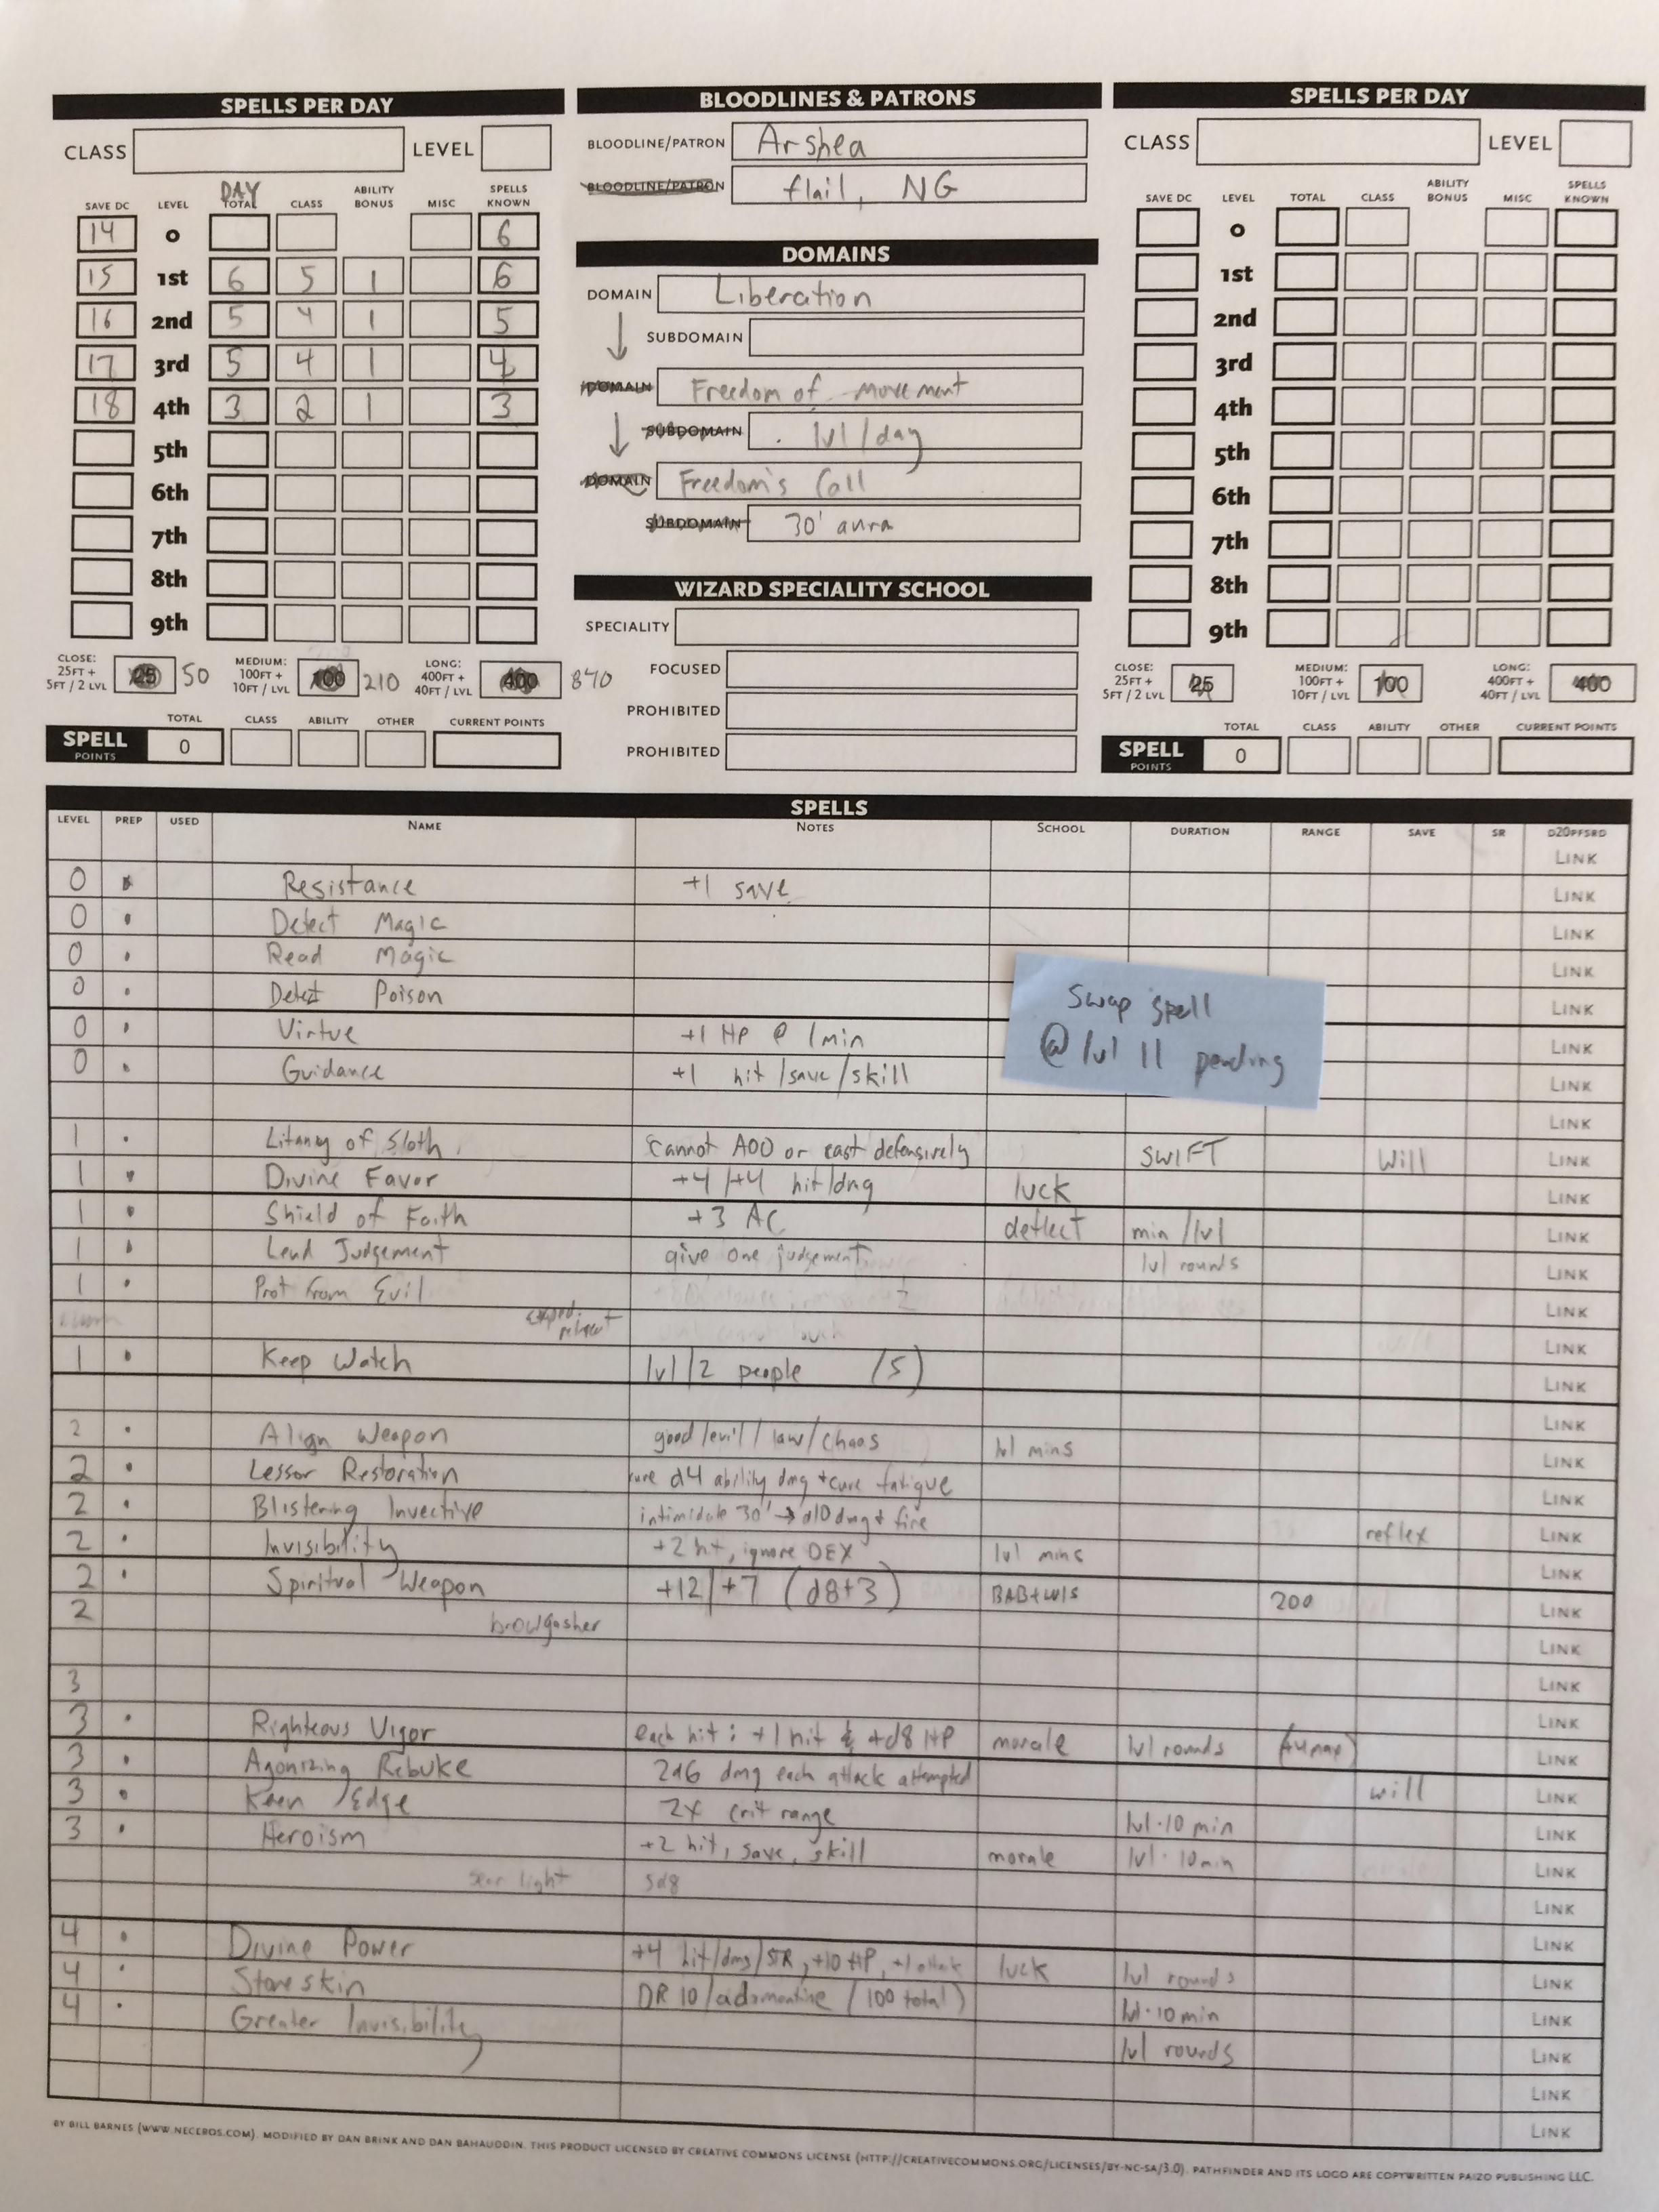 SPELLS PER DAY
CLASS LEVEL
DAY
SAVE DC LEVEL TOTAL CLASS ABILITY BONUS MISC SPELLS KNOWN
14 0 6
15 1st 6 5 1 6
16 2nd 5 4 1 5
17 3rd 5 4 1 4
18 4th 3 2 1 3
5th
6th
7th
8th
9th
CLOSE: 25FT + 5FT / 2 LVL 25 50 MEDIUM: 100FT + 10FT / LVL 100 210 LONG: 400FT + 40FT / LVL 400 840
TOTAL CLASS ABILITY OTHER CURRENT POINTS
SPELL POINTS 0
BLOODLINES & PATRONS
BLOODLINE/PATRON Arshea
BLOODLINE/PATRON flail, NG
DOMAINS
DOMAIN Liberation
SUBDOMAIN
DOMAIN Freedom of movement
SUBDOMAIN lvl/day
DOMAIN Freedom's Call
SUBDOMAIN 30' aura
WIZARD SPECIALITY SCHOOL
SPECIALITY
FOCUSED
PROHIBITED
PROHIBITED
SPELLS PER DAY
CLASS LEVEL
SAVE DC LEVEL TOTAL CLASS ABILITY BONUS MISC SPELLS KNOWN
0
1st
2nd
3rd
4th
5th
6th
7th
8th
9th
CLOSE: 25FT + 5FT / 2 LVL 25 MEDIUM: 100FT + 10FT / LVL 100 LONG: 400FT + 40FT / LVL 400
TOTAL CLASS ABILITY OTHER CURRENT POINTS
SPELL POINTS 0
SPELLS
LEVEL PREP USED NAME NOTES SCHOOL DURATION RANGE SAVE SR D20PFSRD
LINK
0 Resistance +1 save LINK
0 Detect Magic LINK
0 Read Magic LINK
0 Detect Poison LINK
0 Virtue +1 HP @ 1min LINK
0 Guidance +1 hit/save/skill LINK
Swap spell
@ lvl 11 pending
LINK
1 Litany of Sloth cannot AOO or cast defensively SWIFT Will LINK
1 Divine Favor +4/+4 hit/dmg luck LINK
1 Shield of Faith +3 AC deflect min/lvl LINK
1 Lend Judgement give one judgement lvl rounds LINK
1 Prot from Evil LINK
LINK
1 Keep Watch lvl/2 people (5) LINK
LINK
2 Align Weapon good/evil/law/chaos lvl mins LINK
2 Lessor Restoration cure d4 ability dmg + cure fatigue LINK
2 Blistering Invective intimidate 30' → d10 dmg + fire reflex LINK
2 Invisibility +2 hit, ignore DEX lvl mins LINK
2 Spiritual Weapon +12/+7 (d8+3) BAB+WIS 200 LINK
2 browgasher LINK
LINK
3 LINK
3 Righteous Vigor each hit: +1 hit & +d8 HP morale lvl rounds (4 max) LINK
3 Agonizing Rebuke 2d6 dmg each attack attempted will LINK
3 Keen Edge 2x crit range lvl·10 min LINK
3 Heroism +2 hit, save, skill morale lvl·10min LINK
sear light 5d8 LINK
LINK
4 Divine Power +4 hit/dmg/STR, +10 HP, +1 attak luck lvl rounds LINK
4 Stoneskin DR 10/adamantine (100 total) lvl·10 min LINK
4 Greater Invisibility lvl rounds LINK
LINK
LINK
BY BILL BARNES (WWW.NECEROS.COM). MODIFIED BY DAN BRINK AND DAN BAHAUDDIN. THIS PRODUCT LICENSED BY CREATIVE COMMONS LICENSE (HTTP://CREATIVECOMMONS.ORG/LICENSES/BY-NC-SA/3.0). PATHFINDER AND ITS LOGO ARE COPYWRITTEN PAIZO PUBLISHING LLC.